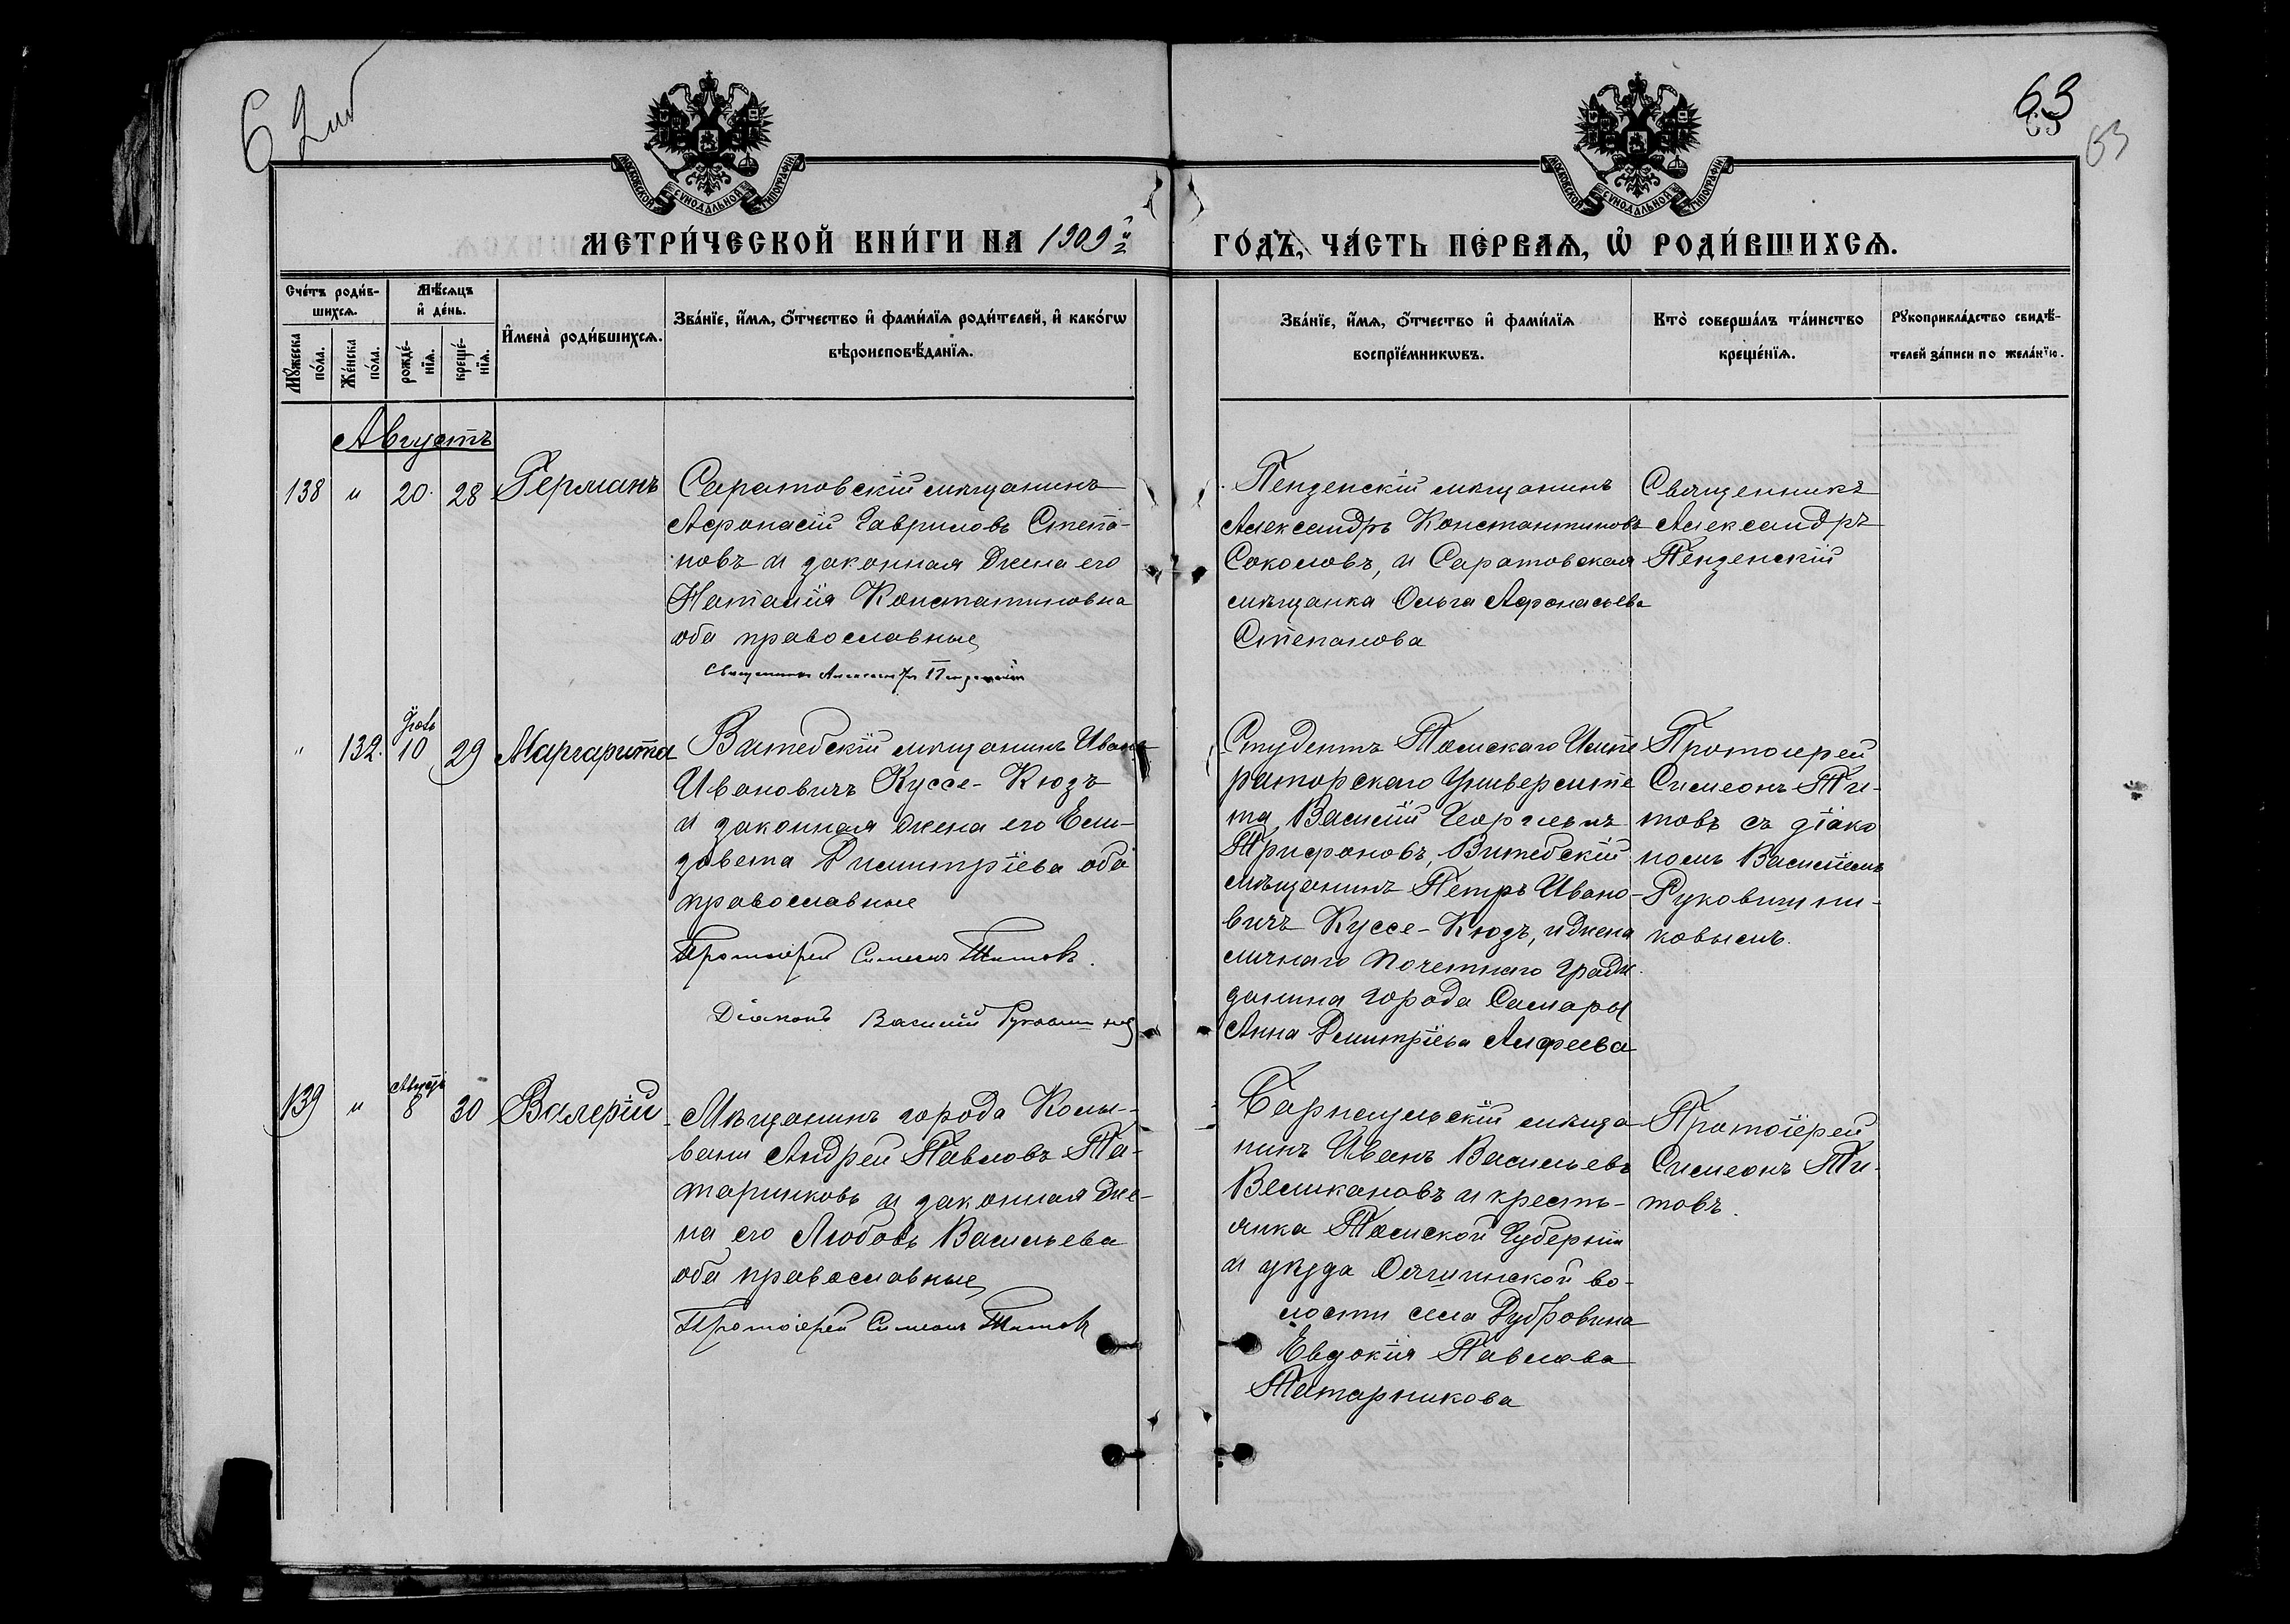 62об
63
63
63
МОСКОВСКОЙ СѴНОДАЛЬНОЙ ТИПОГРАФІИ
МОСКОВСКОЙ СѴНОДАЛЬНОЙ ТИПОГРАФІИ
МЕТРИ́ЧЕСКОЙ КНИ́ГИ НА 1909й
ГО́ДЪ, ЧА́СТЬ ПЕ́РВАѦ, Ѡ҆ РОДИ́ВШИХСѦ.
Сче́тъ роди́в-
шихсѧ.
Мꙋ́жеска
по́ла.
Же́нска
по́ла.
Мѣ́сѧцъ
и҆ де́нь.
рожде́-
нїѧ.
креще́-
нїѧ.
И҆мена̀ роди́вшихсѧ.
Зва́нїе, и҆́мѧ, ѻ҆́тчество и҆ фами́лїѧ роди́телей, и҆ како́гѡ
вѣроисповѣ́данїѧ.
Зва́нїе, и҆́мѧ, ѻ҆́тчество и҆ фами́лїѧ
воспрїе́мникѡвъ.
Кто̀ соверша́лъ та́инство
креще́нїѧ.
Рꙋкоприкла́дство свидѣ́-
телей за́писи по жела́нїю.
Августъ
138 " 20. 28 Германъ
Саратовскій мѣщанинъ
Афонасій Гавриловъ Степа-
новъ и законная жена его
Наталія Константиновна
оба православные
Священникъ Александръ Пензенскій
Пензенскій мѣщанинъ
Александръ Константиновъ
Соколовъ, и Саратовская
мѣщанка Ольга Афонасьева
Степанова
Священникъ
Александръ
Пензенскій
" 132. Іюль 10 29 Маргарита
Витебскій мѣщанинъ Иванъ
Ивановичъ Куссе-Кюзъ
и законная жена его Ели-
завета Димитріева оба
православные
Протоіерей Симеонъ Титовъ.
Діаконъ Василій
Студентъ Томскаго Импе
раторскаго Университе
та Василій Георгіевъ
Трифоновъ, Витебскій
мѣщанинъ Петръ Ивано-
вичъ Куссе-Кюзъ, и жена
личнаго почетнаго граж.
данина города Самары
Анна Дмитріева Алфеева
Протоіерей
Симеонъ Ти-
товъ съ діако
номъ Василіемъ
Рукавишни-
ковымъ.
139 " Августъ 8 30 Валерій
Мѣщанинъ города Колы-
вани Андрей Павловъ Та-
тарниковъ и законная же-
на его Любовь Васильева
оба православные
Протоіерей Симеонъ Титовъ
Барнаульскій мѣща
нинъ Иванъ Васильевъ
Великановъ и кресть-
янка Томской Губерніи
и уѣзда Ояшинской во-
лости села Дубровина
Евдокія Павлова
Татарникова
Протоіерей
Симеонъ Ти-
товъ.